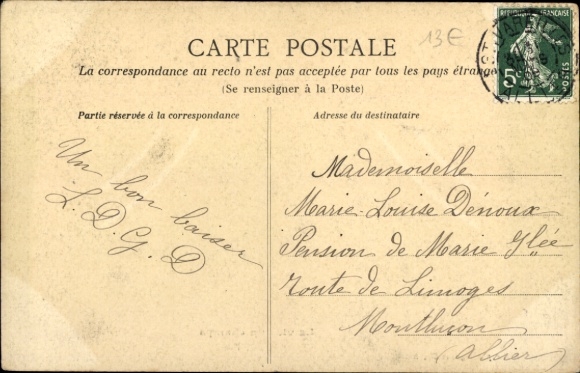 CARTE POSTALE
13€
La correspondance au recto n'est pas acceptée par tous les pays étrange
(Se renseigner à la Poste)
Partie réservée à la correspondance
Un bon baiser
L. D. G. D
Adresse du destinataire
Mademoiselle
Marie-Louise Dénoux
Pension de Marie Glée
Route de Limoges
Montluçon
Allier
RÉPUBLIQUE FRANÇAISE
5c
POSTES